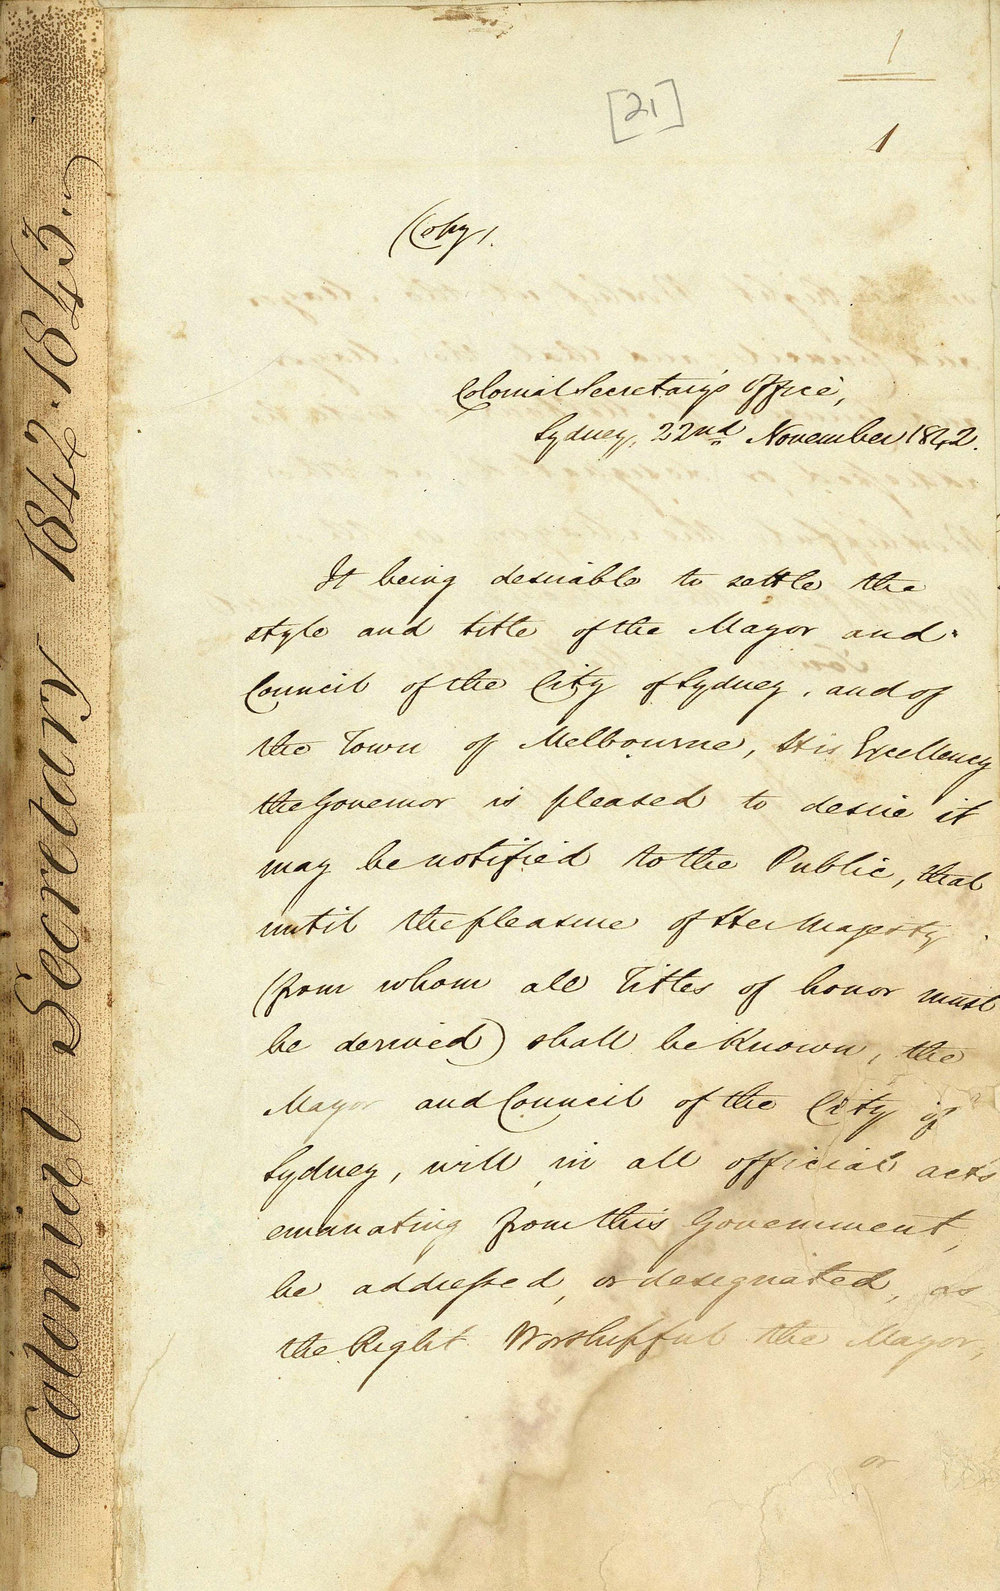 Colonial Secretary 1842-1843.
1
[21]
1
(Copy).
Colonial Secretary's Office,
Sydney, 22nd November 1842.
It being desirable to settle the
style and title of the Mayor and
Council of the City of Sydney, and of
the Town of Melbourne, His Excellency
the Governor is pleased to desire it
may be notified to the Public, that
until the pleasure of Her Majesty
(from whom all Titles of honor must
be derived) shall be Known, the
Mayor and Council of the City of
Sydney, will in all official acts
emanating from this Government,
be addressed, or designated, as
the Right Worshipful the Mayor,
or